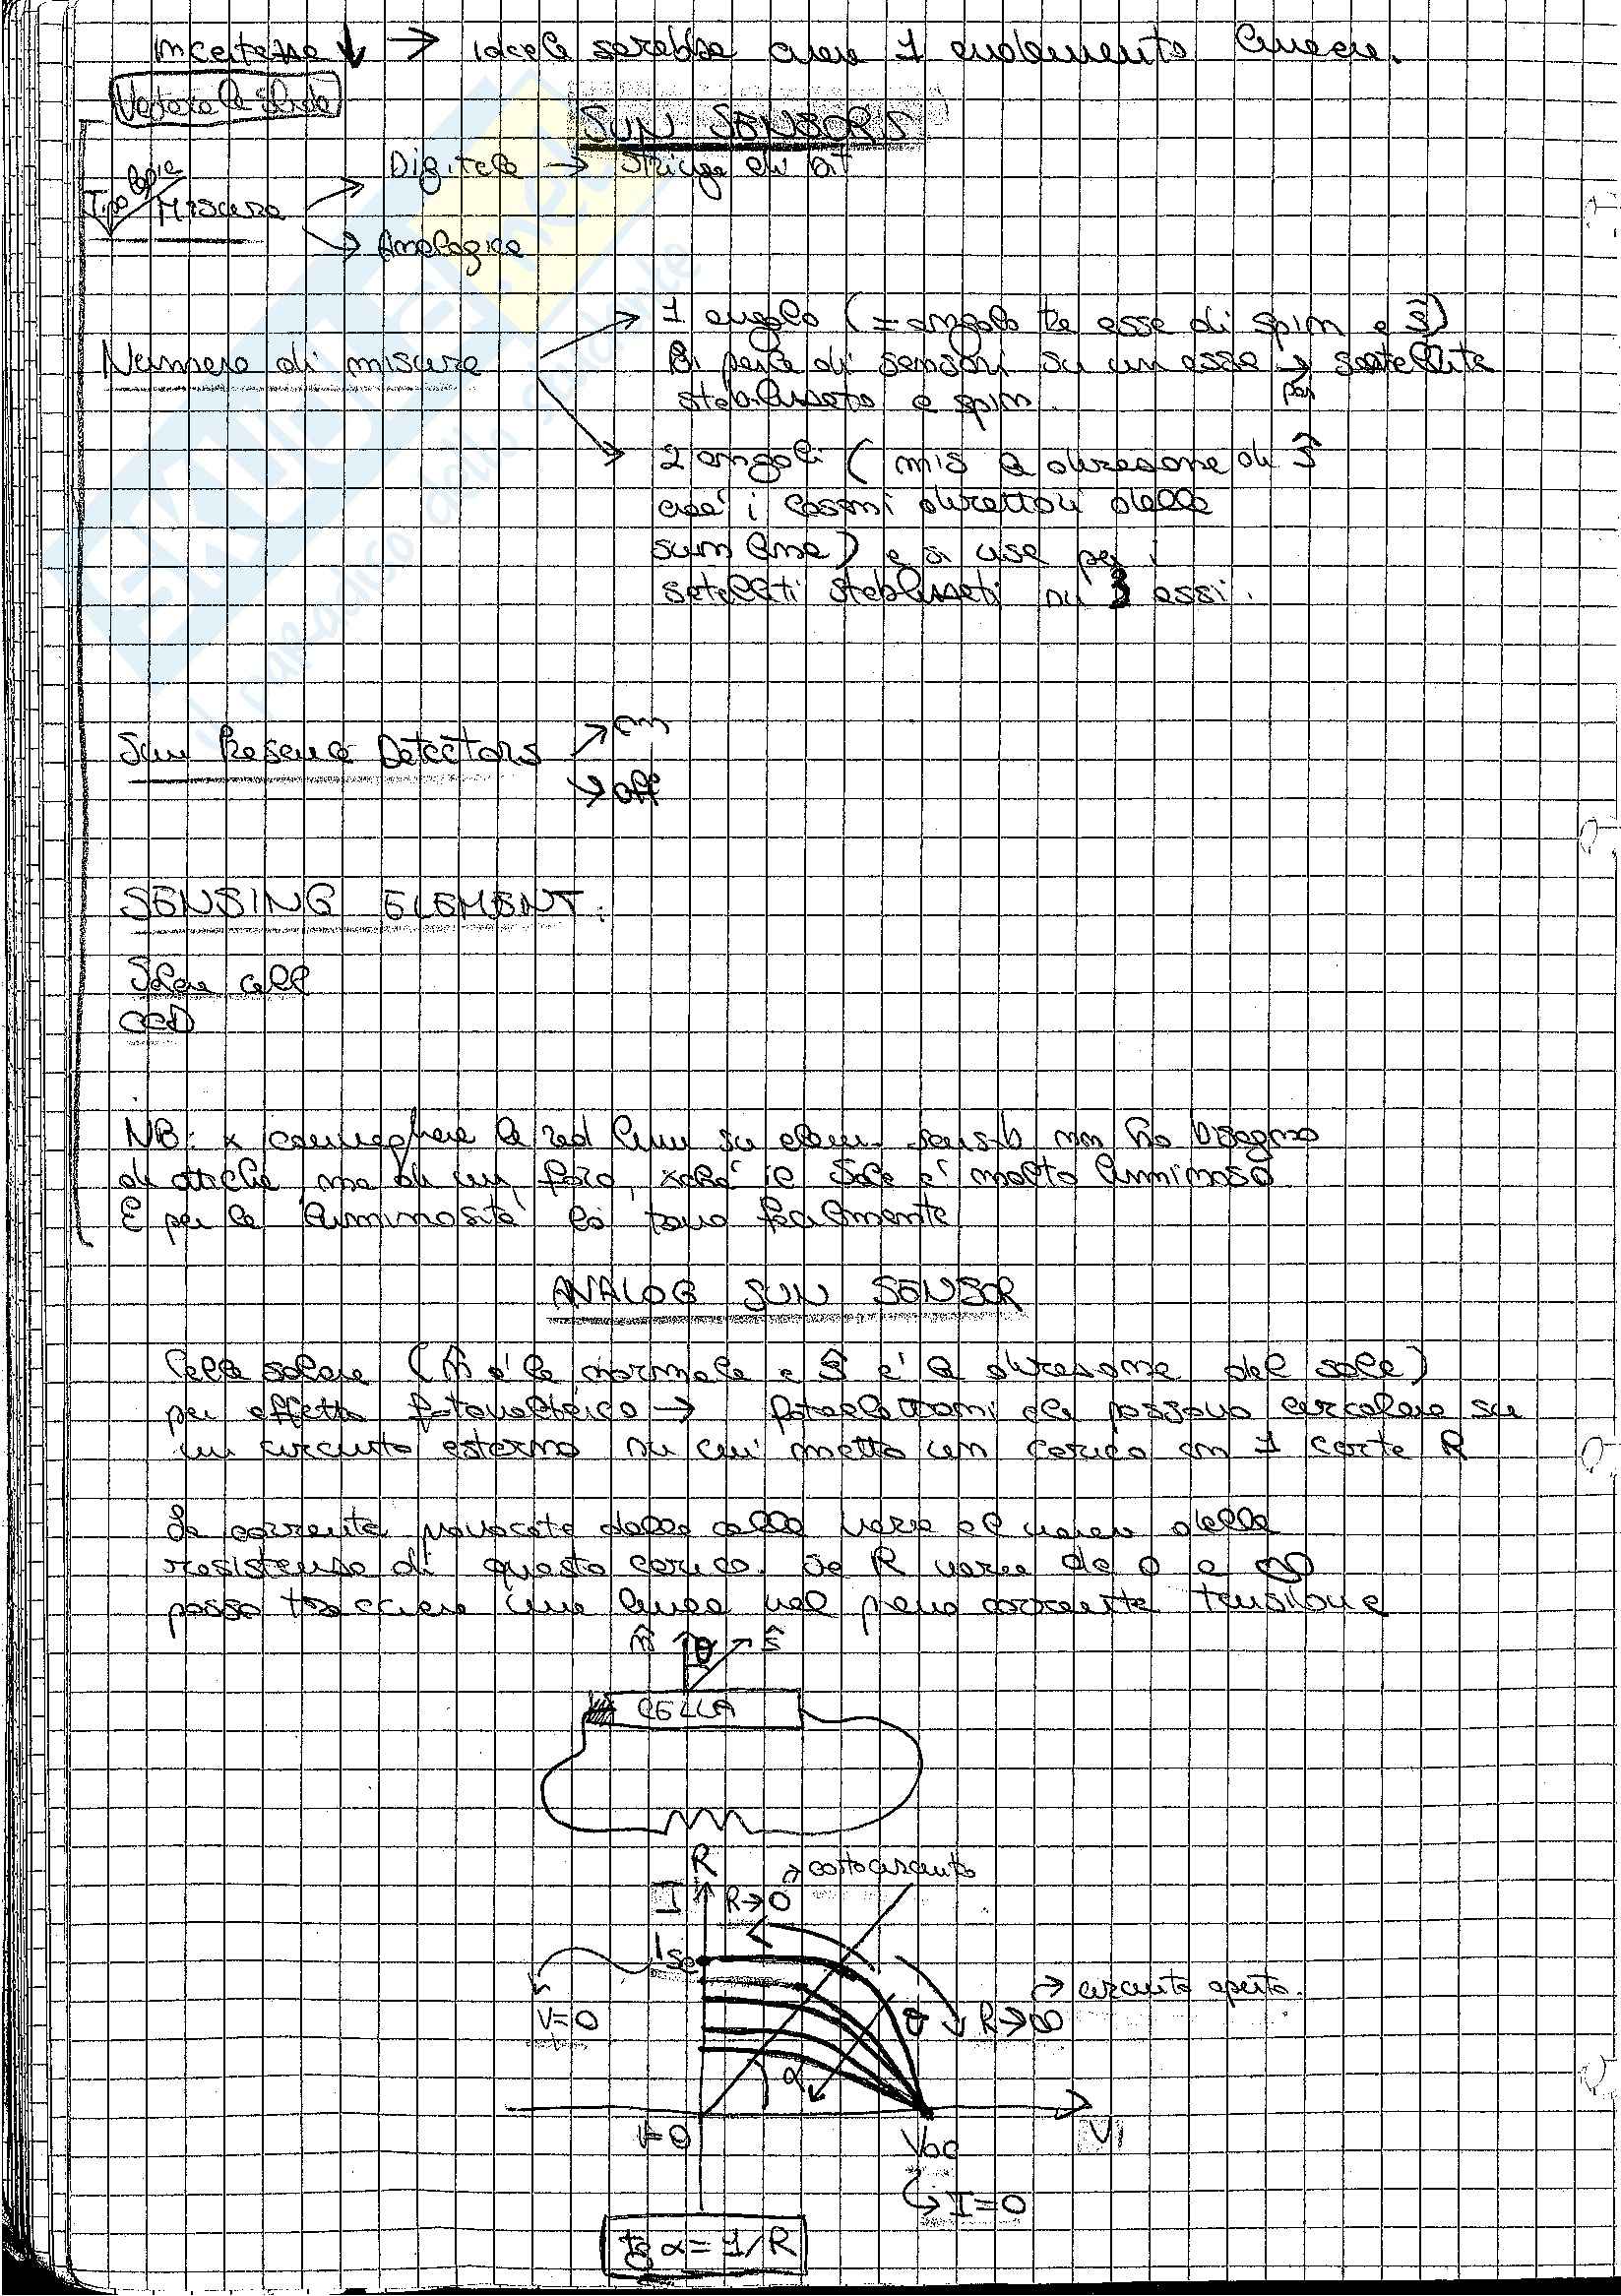 incertezza ↓ → ideale sarebbe avere 1 andamento lineare.
Vedere le slide
SUN SENSORS
Tipo
Misura
Digitale → Stringa di bit
Analogica
Numero di misure
1 angolo (= angolo tra asse di spin e ŝ)
Si parla di sensori su un asse → satellite
per
stabilizzato a spin.
2 angoli (mis la direzione di ŝ
cioè i coseni direttori della
sun line) e si usa per i
satelliti stabilizzati su 3 assi.
Sun Presence Detectors
on
off
SENSING ELEMENT:
Solar cell
CCD
NB: x convogliare la rad lum su elem. sensib non ho bisogno
di ottiche, ma di un foro, xché il Sole è molto luminoso.
E per la luminosità lo trovo facilmente
ANALOG SUN SENSOR
Cella solare (n̂ è la normale e ŝ è la direzione del sole)
per effetto fotovoltaico → fotoelettroni che possono circolare su
un circuito esterno su cui metto un carico con 1 certa R
La corrente provocata dalla cella varia al variare della
resistenza di questo carico. Se R varia da 0 a ∞
posso tracciare una linea nel piano corrente tensione
n̂ θ ŝ
CELLA
R
→ cortocircuito
I R→0
Isc
→ circuito aperto.
V=0 θ R→∞
α
V
Voc
I=0
tg α = 1/R